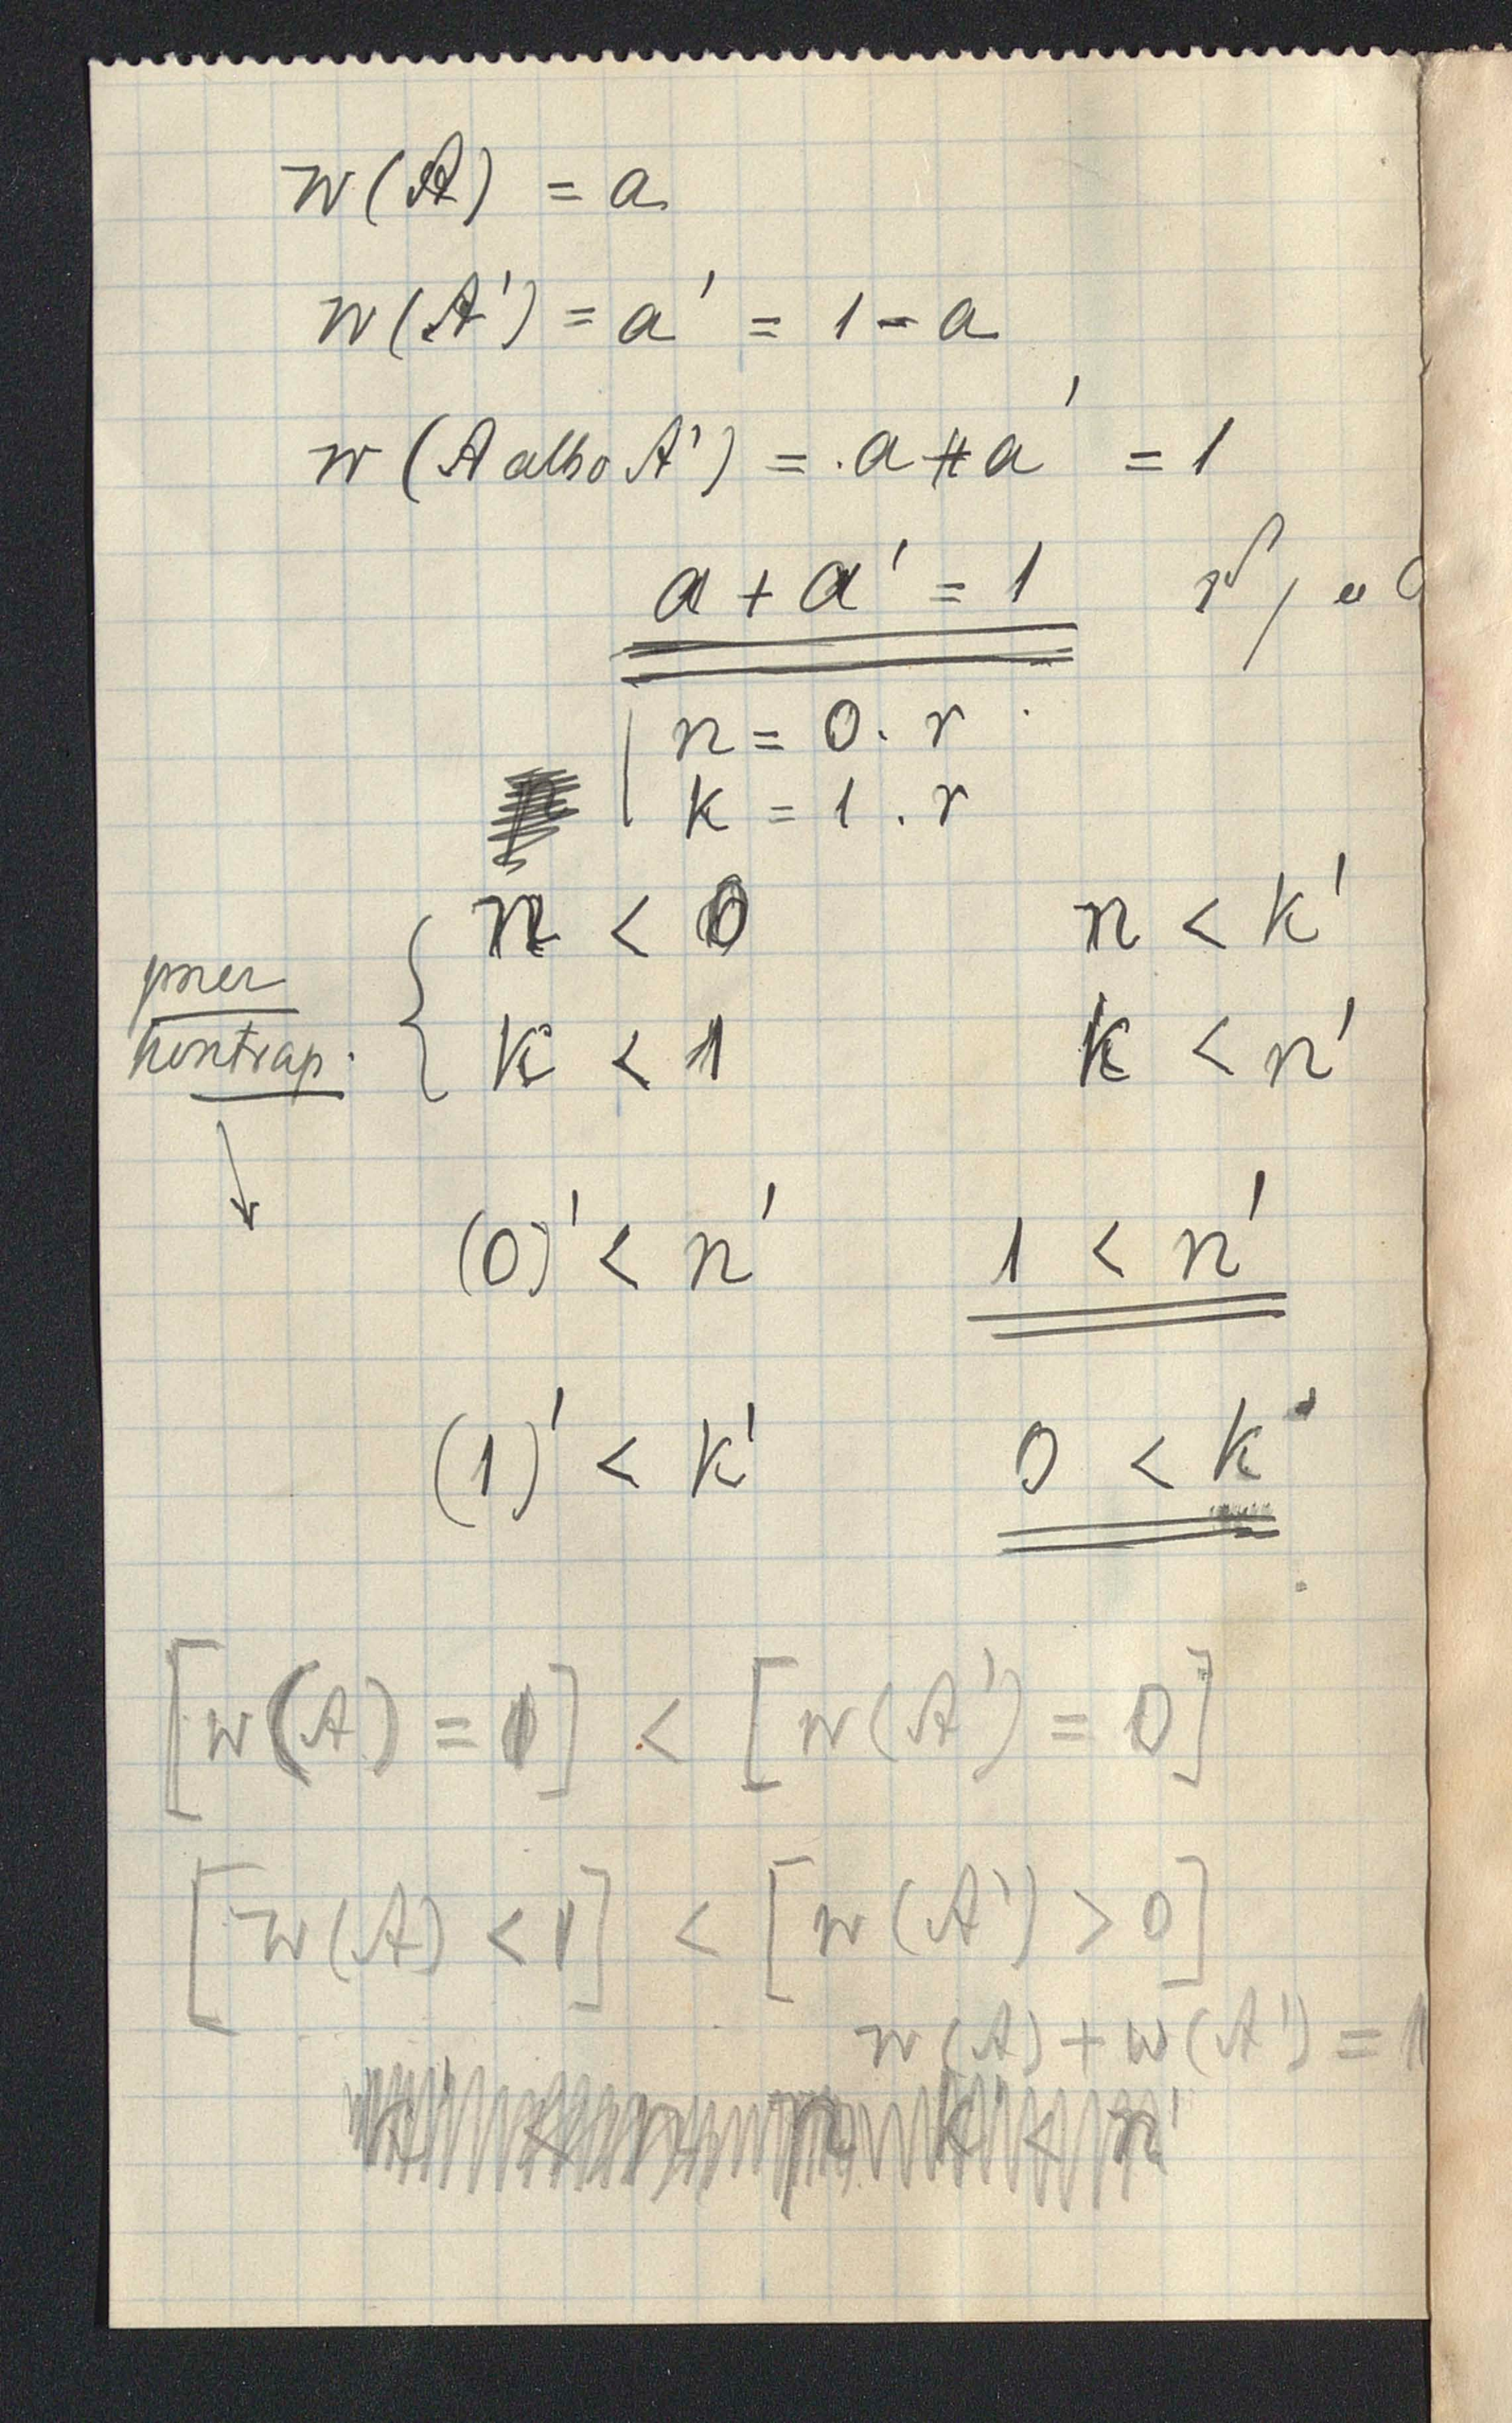 w(A) = a
w(A') = a' = 1 - a
w(A albo A') = a + a' = 1
a + a' = 1
n = 0 . r
k = 1 . r
n < 0 n < k'
przez
kontrap.
k < 1 k < n'
(0)' < n' 1 < n'
(1)' < k' 0 < k'
[w(A) = 1] < [w(A') = 0]
[w(A) < 1] < [w(A') > 0]
w(A) + w(A') = 1
k' < n'